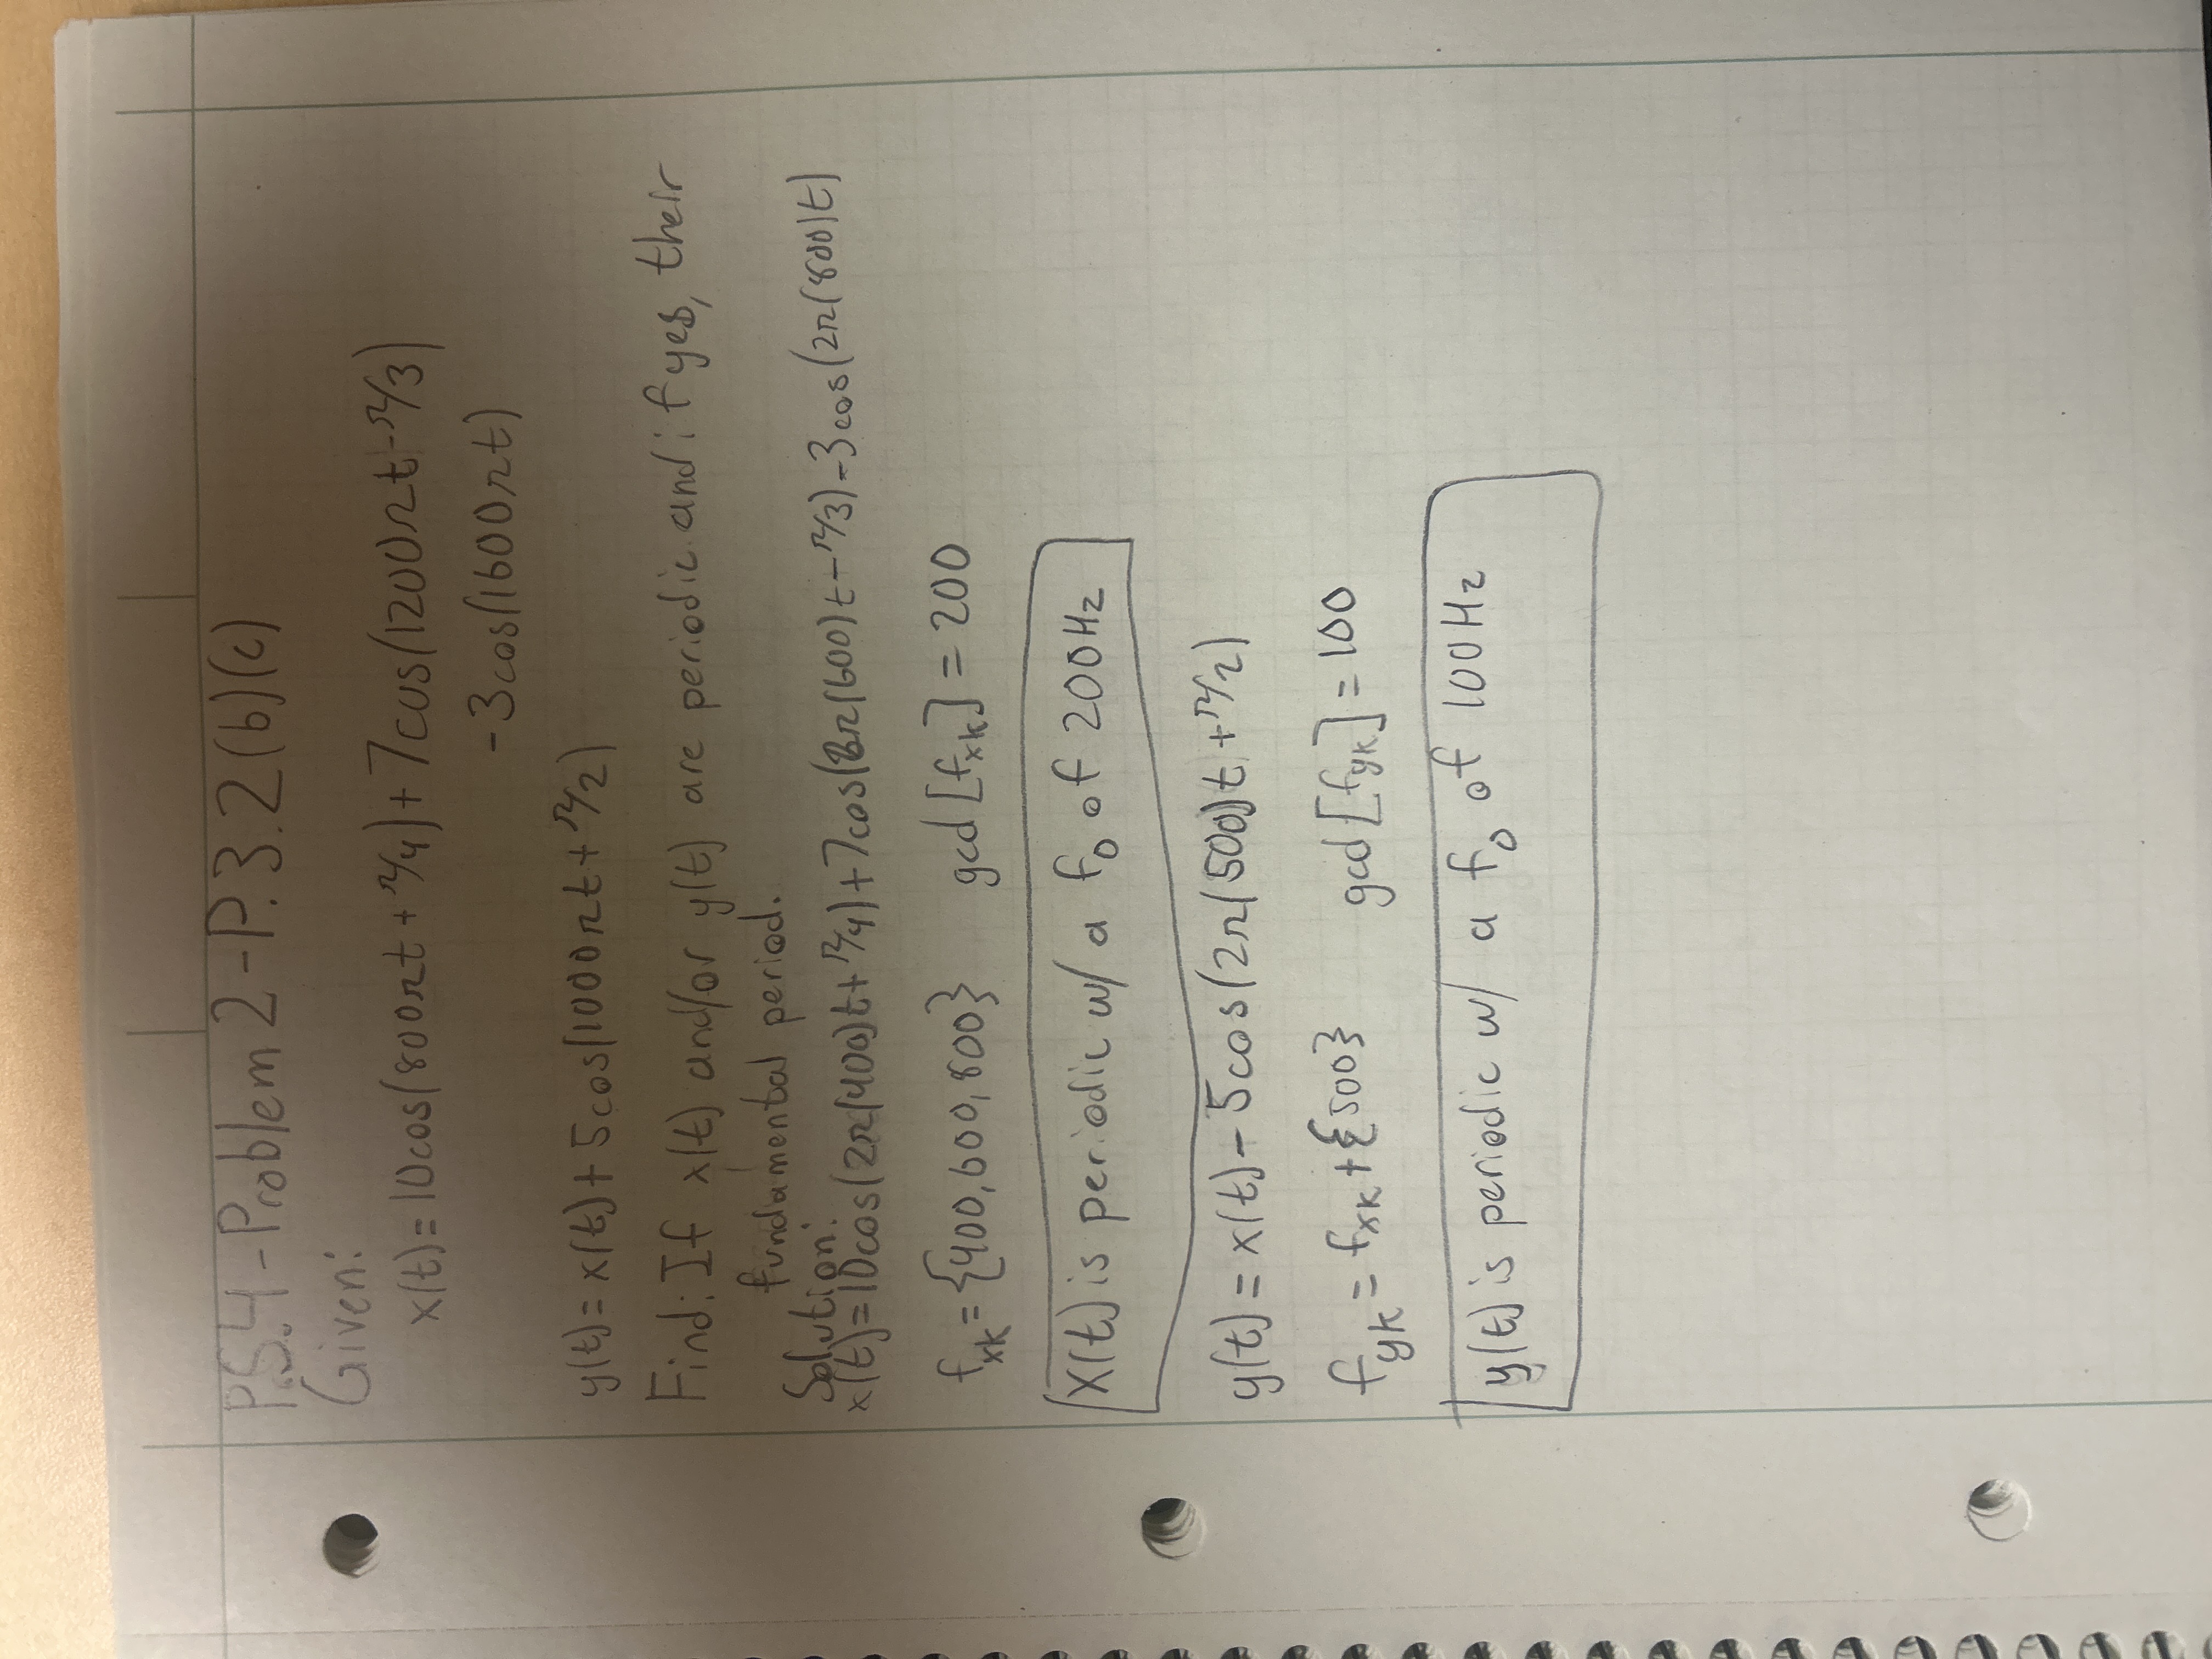 P.S.4 - Problem 2 - P.3.2(b)(c)
Given:
x(t) = 10cos(800πt + π/4) + 7cos(1200πt - π/3)
- 3cos(1600πt)
y(t) = x(t) + 5cos(1000πt + π/2)
Find: If x(t) and/or y(t) are periodic and if yes, their
fundamental period.
Solution:
x(t) = 10cos(2π(400)t + π/4) + 7cos(2π(600)t - π/3) - 3cos(2π(800)t)
f_xk = {400, 600, 800} gcd[f_xk] = 200
x(t) is periodic w/ a f_0 of 200Hz
y(t) = x(t) - 5cos(2π(500)t + π/2)
f_yk = f_xk + {500} gcd[f_yk] = 100
y(t) is periodic w/ a f_0 of 100Hz